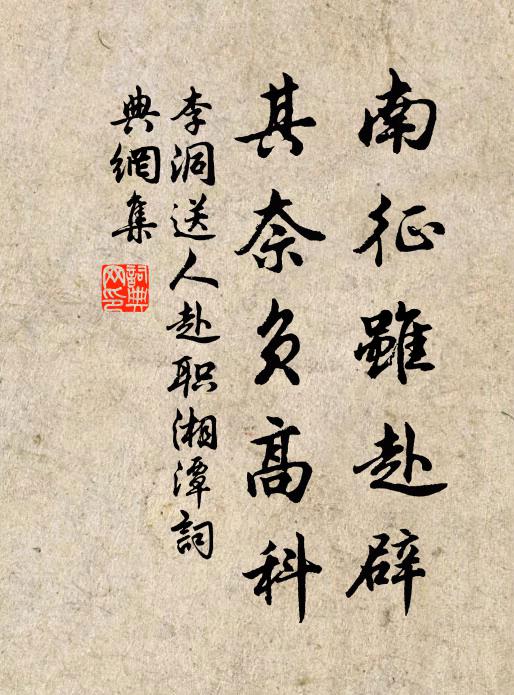 南征雖赴辟
其奈負高科
李洞送人赴职湘潭詞
典網集
詞典
网印